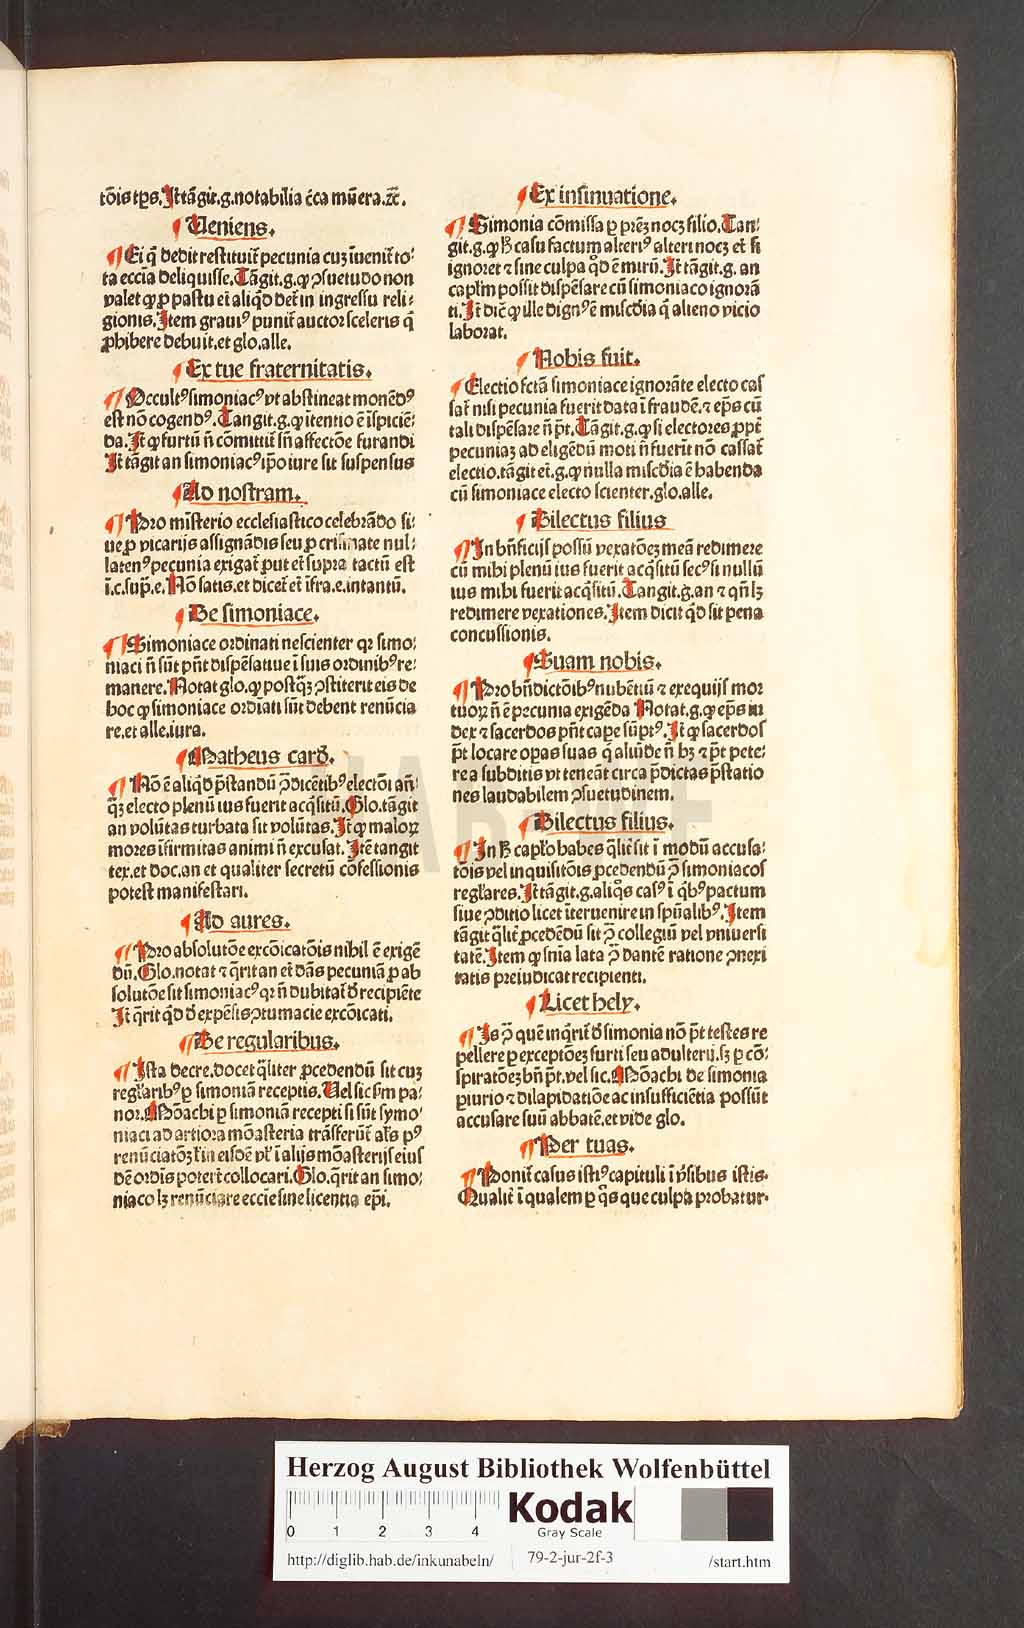 tōis tꝑs. Jt̄ tāgit.g.notabilia ēca mūera.ꝛc̄.
Ueniens.
¶ Ei q̄ dedit restituit̄ pecunia cuꝫ īuenit̄ to⸗
ta eccīa deliquisse. Tāgit.g.ꝙ ↄsuetudo non
valet ꝙ ꝓ pastu et aliq̇d det̄ in ingressu reli⸗
gionis. Jtem grauiꝰ punit̄ auctor sceleris q̄
ꝓhibere debuit.et glo.alle.
Ex tue fraternitatis.
¶ Occultꝰ simoniacꝰ vt abstineat monēdꝰ
est nō cogendꝰ. Tangit.g.ꝙ ītentio ē īspiciē⸗
da. Jt̄ ꝙ furtū n̄ cōmittit̄ sn̄ affectōe furandi
Jt̄ tāgit an simoniacꝰ ip̄o iure sit suspensus
Ad nostram.
¶ Pro mīsterio ecclesiastico celebrādo si⸗
ue ꝓ vicarijs assignādis seu ꝓ crismate nul⸗
latenꝰ pecunia exigat̄ ꝓut et̄ supra tactū est
ī.c.sup̄.e. Nō satis.et dicet̄ et īfra.e.in tantū.
De simoniace.
¶ Simoniace ordinati nescienter qꝛ simo⸗
niaci n̄ sūt pn̄t dispēsatiue ī suis ordinibꝰ re⸗
manere. Notat glo.ꝙ postq̄ꝫ ↄstiterit eis de
hoc ꝙ simoniace ordīati sūt debent renūcia
re.et alle.iura.
Matheus card̄.
¶ Nō ē aliq̇d p̄standū ↄdicētibꝰ electōi an⸗
q̄ꝫ electo plenū ius fuerit acq̇sitū. Glo.tāgit
an volūtas turbata sit volūtas. Jt̄ ꝙ maloꝝ
mores īfirmitas animi n̄ excusat. Jtē tangit
tex.et doc.an et qualiter secretū cōfessionis
potest manifestari.
Ad aures.
¶ Pro absolutōe excōicatōis nihil ē exigē
dū. Glo.notat ⁊ q̄rit an et dās pecuniā ꝓ ab
solutōe sit simoniacꝰ qꝛ n̄ dubitat̄ d̄ recipiēte
Jt̄ q̄rit q̇d d̄ expēsis ↄtumacie excōicati.
De regularibus.
¶ Jsta decre.docet q̄liter ꝓcedendū sit cuꝫ
regl̄aribꝰ ꝑ simoniā receptis. Uel sic s̄m pa⸗
nor. Mōachi ꝑ simoniā recepti si sūt symo⸗
niaci ad artiora mōasteria trāsferūt̄ al̄s pꝰ
renūciatōꝫ
dē ordīs poterit̄ collocari. Glo.q̄rit an simo⸗
niaco lꝫ renūciare eccīe sine licentia ep̄i.
Ex insinuatione.
¶ Simonia cōmissa ꝑ pr̄eꝫ nocꝫ filio. Tan⸗
git.g.ꝙ h̄ casu factum alteriꝰ alteri nocꝫ et si
ignoret ⁊ sine culpa q̇d ē mirū. Jt̄ tāgit.g. an
capl̄m possit dispēsare cū simoniaco ignorā
ti. Jt̄ dic̄ ꝙ ille dignꝰ ē mīscd̄ia q̄ alieno vicio
laborat.
Nobis fuit.
¶ Electio fctā simoniace ignorāte electo cas
sat̄ nisi pecunia fuerit data ī fraudē.⁊ ep̄s cū
tali dispēsare n̄ pt̄. Tāgit.g.ꝙ si electores ꝓpt̄
pecuniaꝫ ad eligēdū moti n̄ fuerit nō cassat̄
electio.tāgit et̄.g.ꝙ nulla mīscd̄ia ē habenda
cū simoniace electo scienter.glo.alle.
Dilectus filius
¶ Jn bn̄ficijs possū vexatōeꝫ meā redimere
cū mihi plenū ius fuerit acq̇sitū secꝰ si nullū
ius mihi fuerit acq̇sitū. Tangit.g.an ⁊ qn̄ lꝫ
redimere vexationes. Jtem dicit q̇d sit pena
concussionis.
Suam nobis.
¶ Pro bn̄dictōibꝰ nubētiū ⁊ exequijs mor
tuoꝝ n̄ ē pecunia exigēda Notat.g.ꝙ ep̄s iu
dex ⁊ sacerdos pn̄t cape sūptꝰ. Jt̄ ꝙ sacerdos
pt̄ locare oꝑas suas q̄ aliūde n̄ hꝫ ⁊ pt̄ pete⸗
re a subditis vt teneāt circa p̄dictas p̄statio
nes laudabilem ↄsuetudinem.
Dilectus filius.
¶ Jn h̄ capl̄o habes q̄lit̄ sit ī modū accusa⸗
tōis vel inquisitōis ꝓcedendū ↄ̄ simoniacos
regl̄ares. Jt̄ tāgit.g.aliq̇s casꝰ ī q̇bꝰ pactum
siue ↄditio licet īteruenire in spūalibꝰ. Jtem
tāgit q̄lit̄ ꝓcedēdū sit ↄ̄ collegiū vel vniuersi
tatē. Jtem ꝙ snīa lata ↄ̄ dantē ratione ↄnexi
tatis preiudicat recipienti.
Licet hely.
¶ Js ↄ̄ quē inq̇rit̄ d̄ simonia nō pt̄ testes re
pellere ꝑ exceptōeꝫ furti seu adulterij.sꝫ ꝑ cō⸗
spiratōeꝫ bn̄ pt̄.vel sic. Mōachi de simonia
ꝑiurio ⁊ dilapidatiōe ac insufficiētia possūt
accusare suū abbatē.et vide glo.
Per tuas.
¶ Ponit̄ casus istiꝰ capituli ī v̄sibus istis.
Qualit̄ ī qualem ꝑ q̄s que culpa probatur.
HAB WF
Herzog August Bibliothek Wolfenbüttel
0 1 2 3 4
Kodak
Gray Scale
http://diglib.hab.de/inkunabeln/ 79-2-jur-2f-3 /start.htm